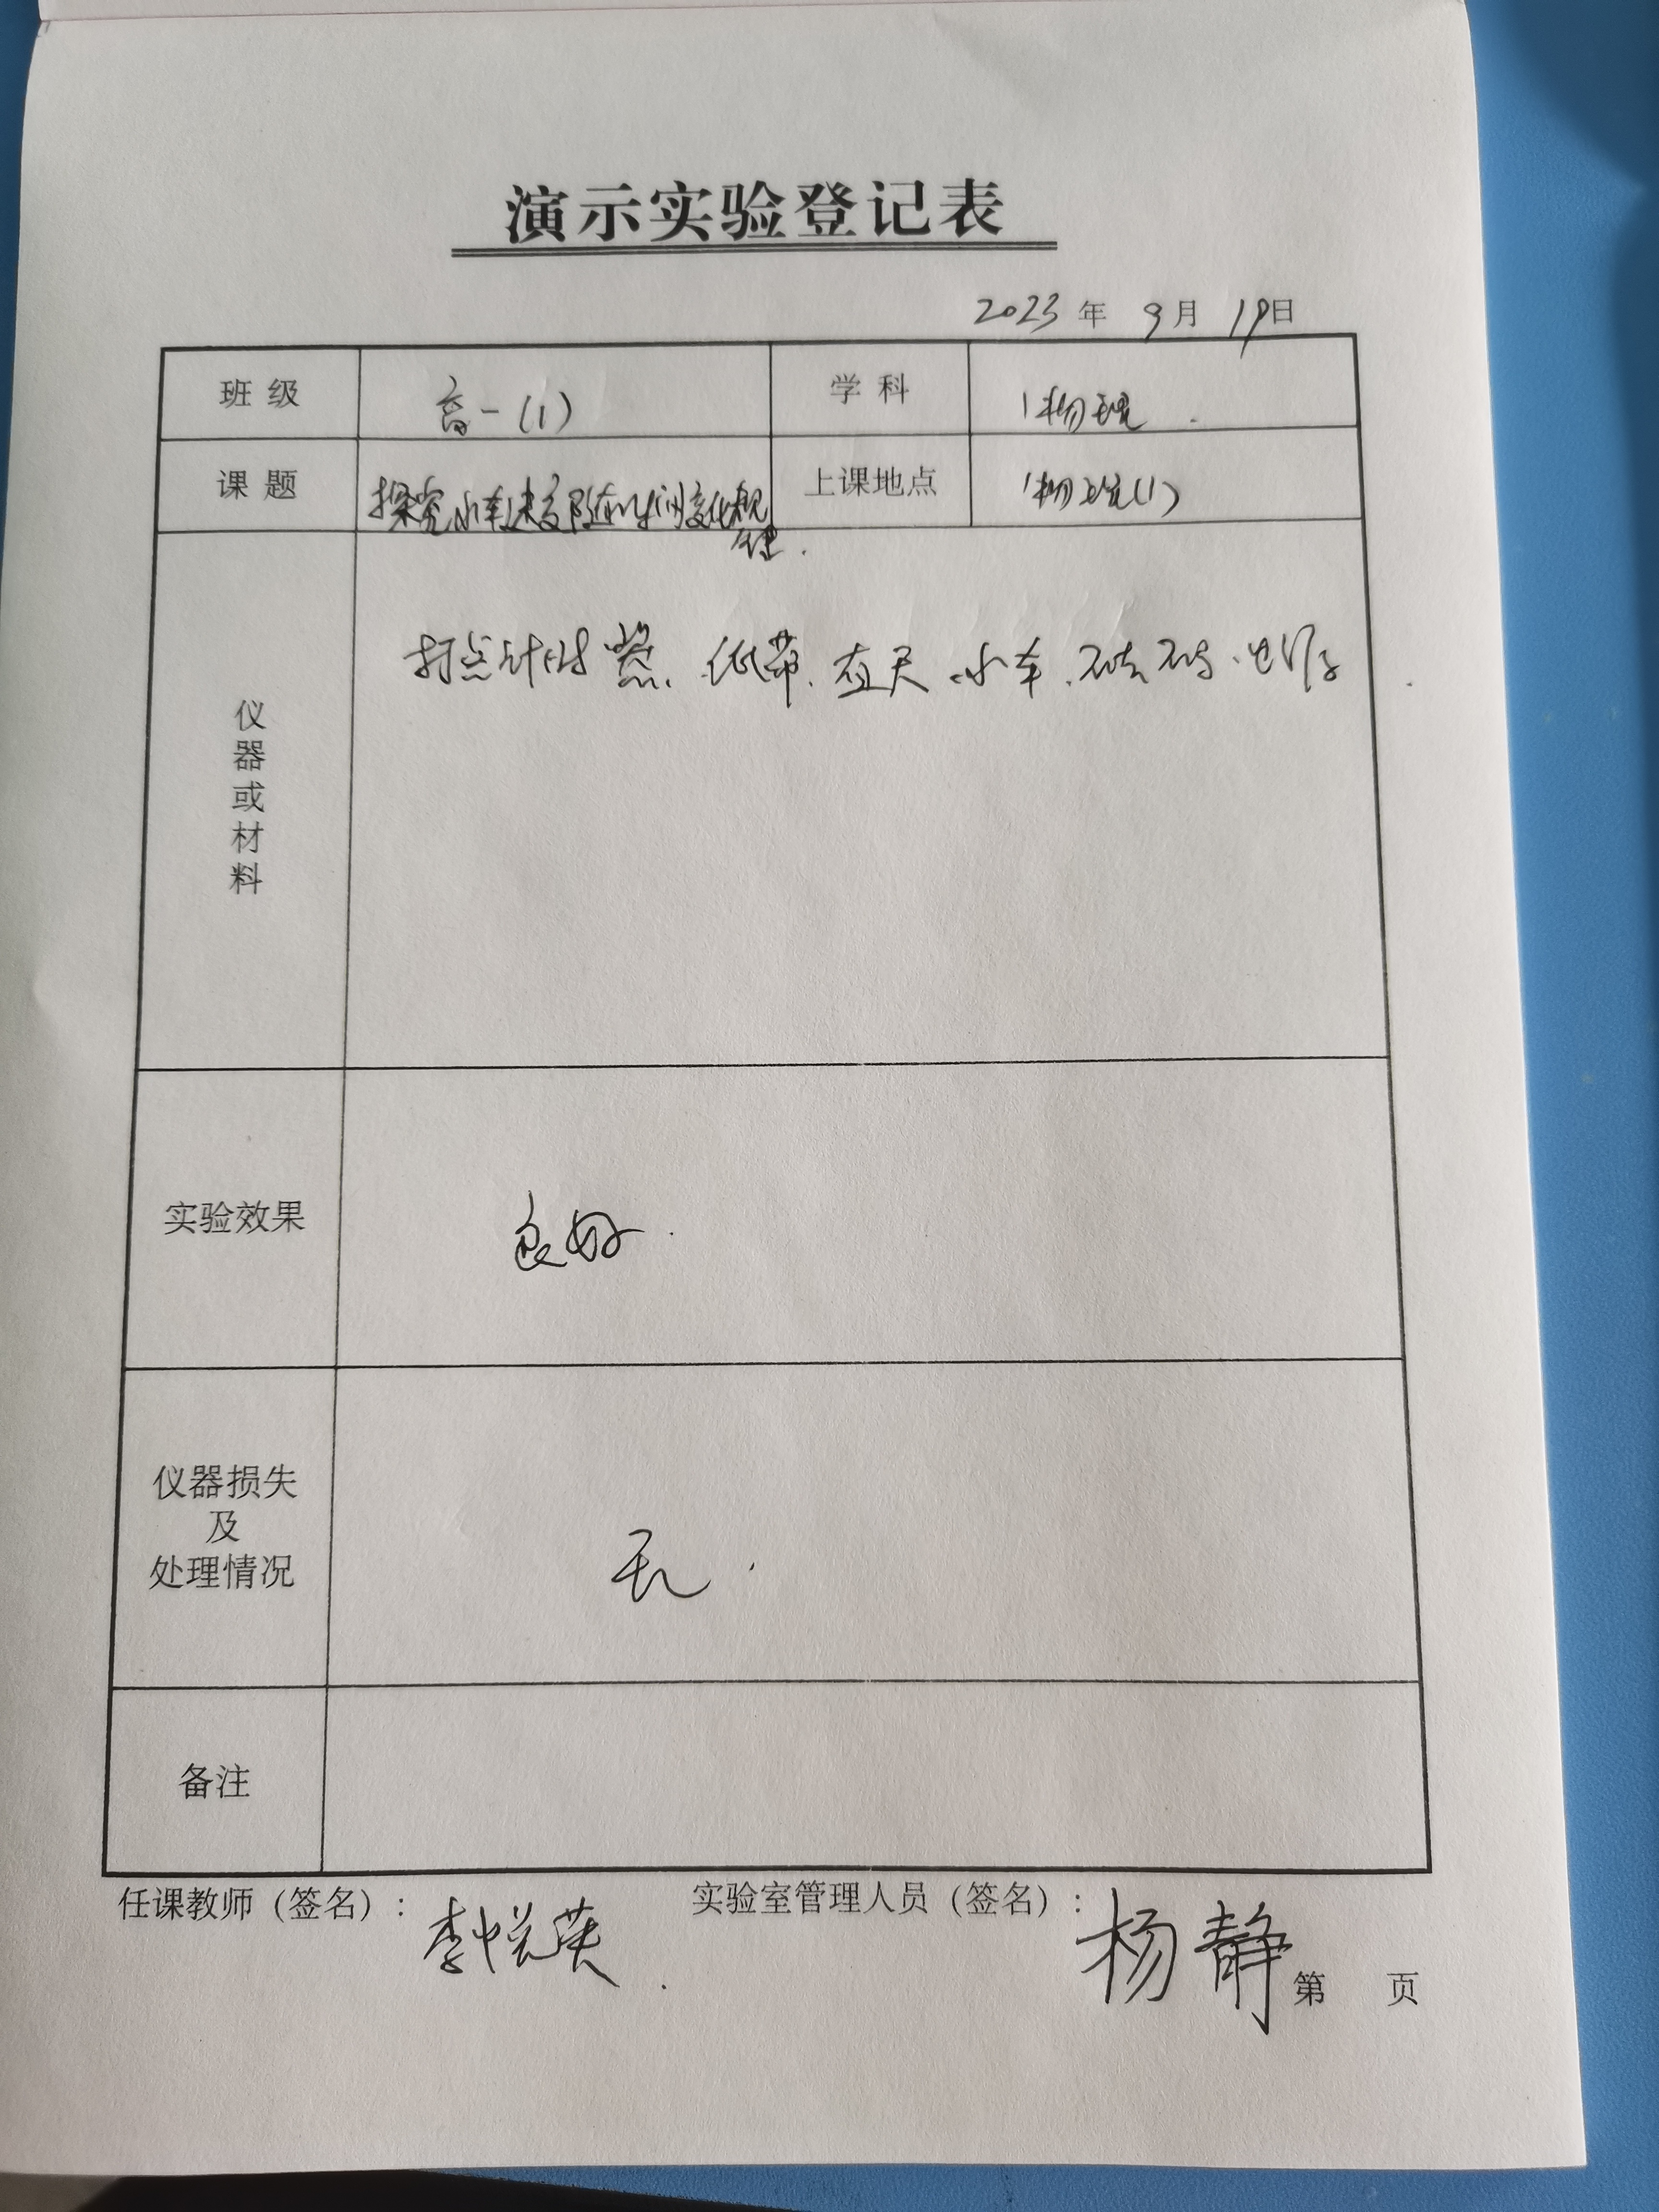 演示实验登记表
2023年9月19日
班级 高一(1) 学科 物理.
课题 探究小车速度随时间变化规律. 上课地点 物理(1)
仪器或材料 打点计时器、纸带、直尺、小车、砝码、
实验效果 良好.
仪器损失
及
处理情况 无.
备注
任课教师（签名）: 李悦英. 实验室管理人员（签名）: 杨静
第 页